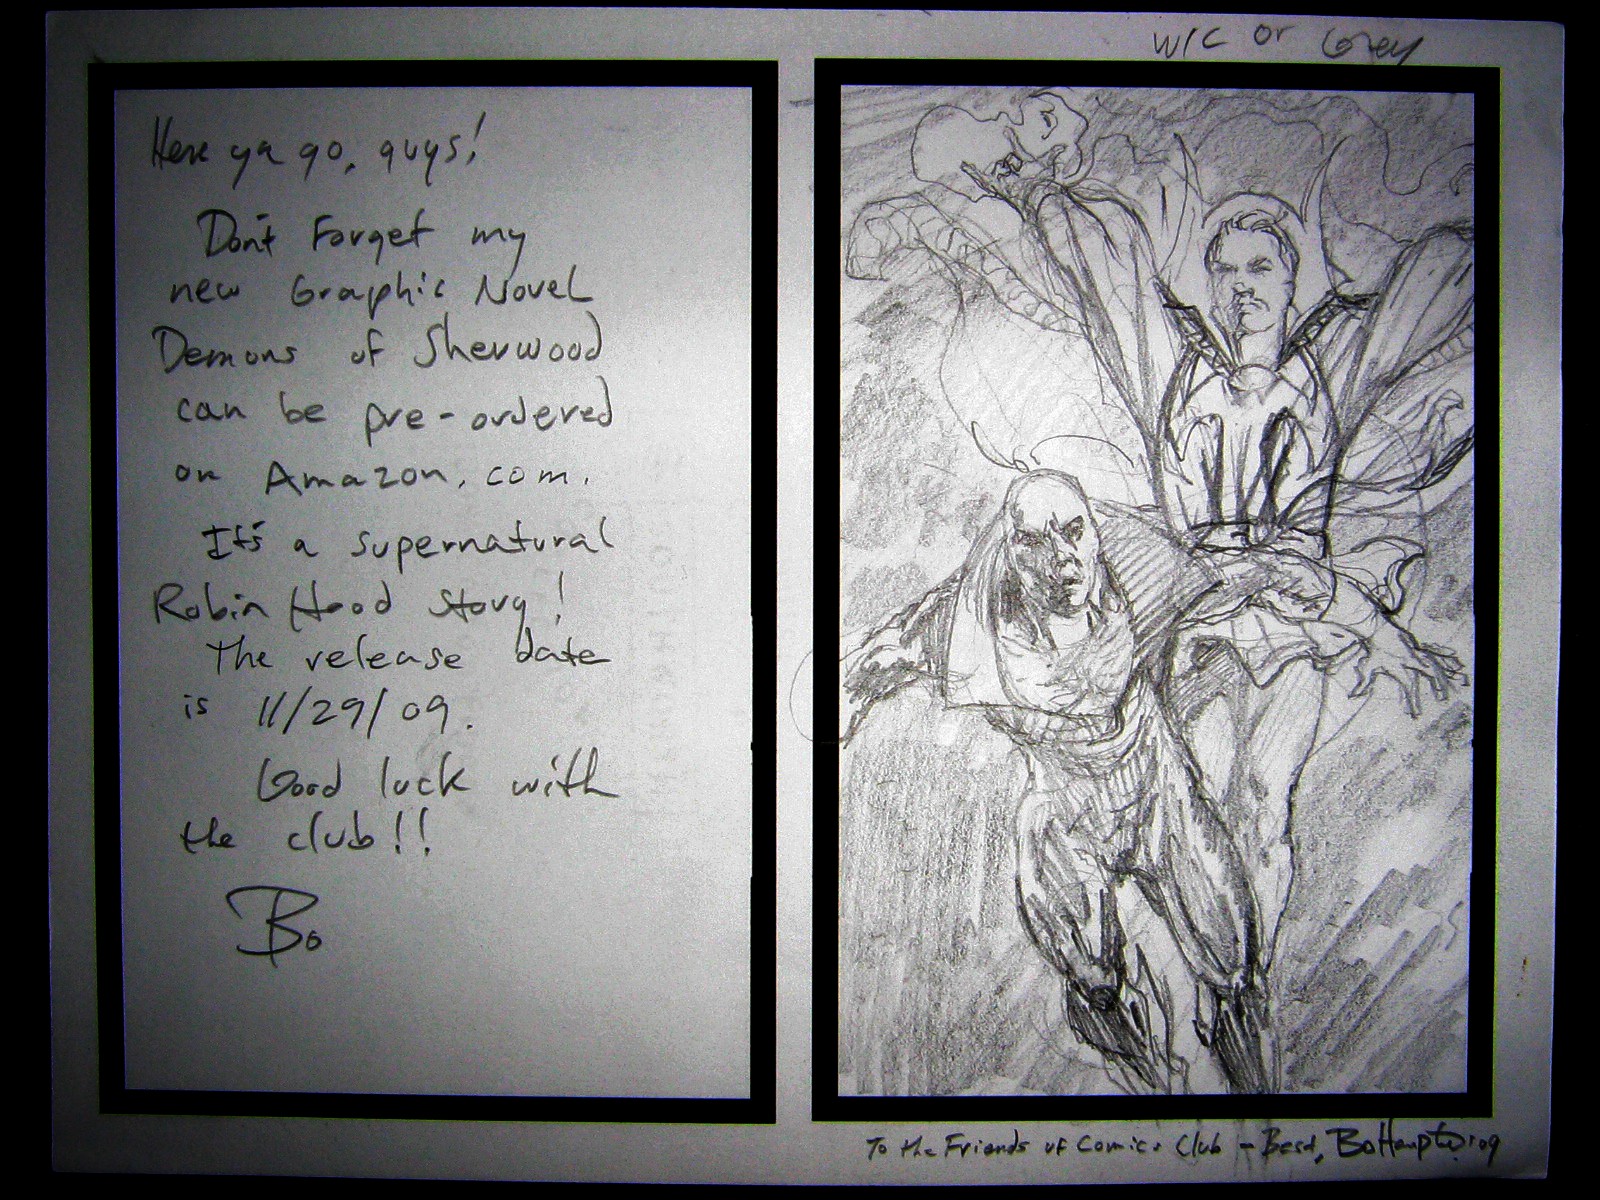 W/C or Grey
Here ya go, guys!
Don't Forget my
new Graphic Novel
Demons of Sherwood
can be pre-ordered
on Amazon.com.
It's a supernatural
Robin Hood Story!
The release date
is 11/29/09.
Good luck with
the club!!
Bo
To the Friends of Comics Club - Best, Bo Hampton 09